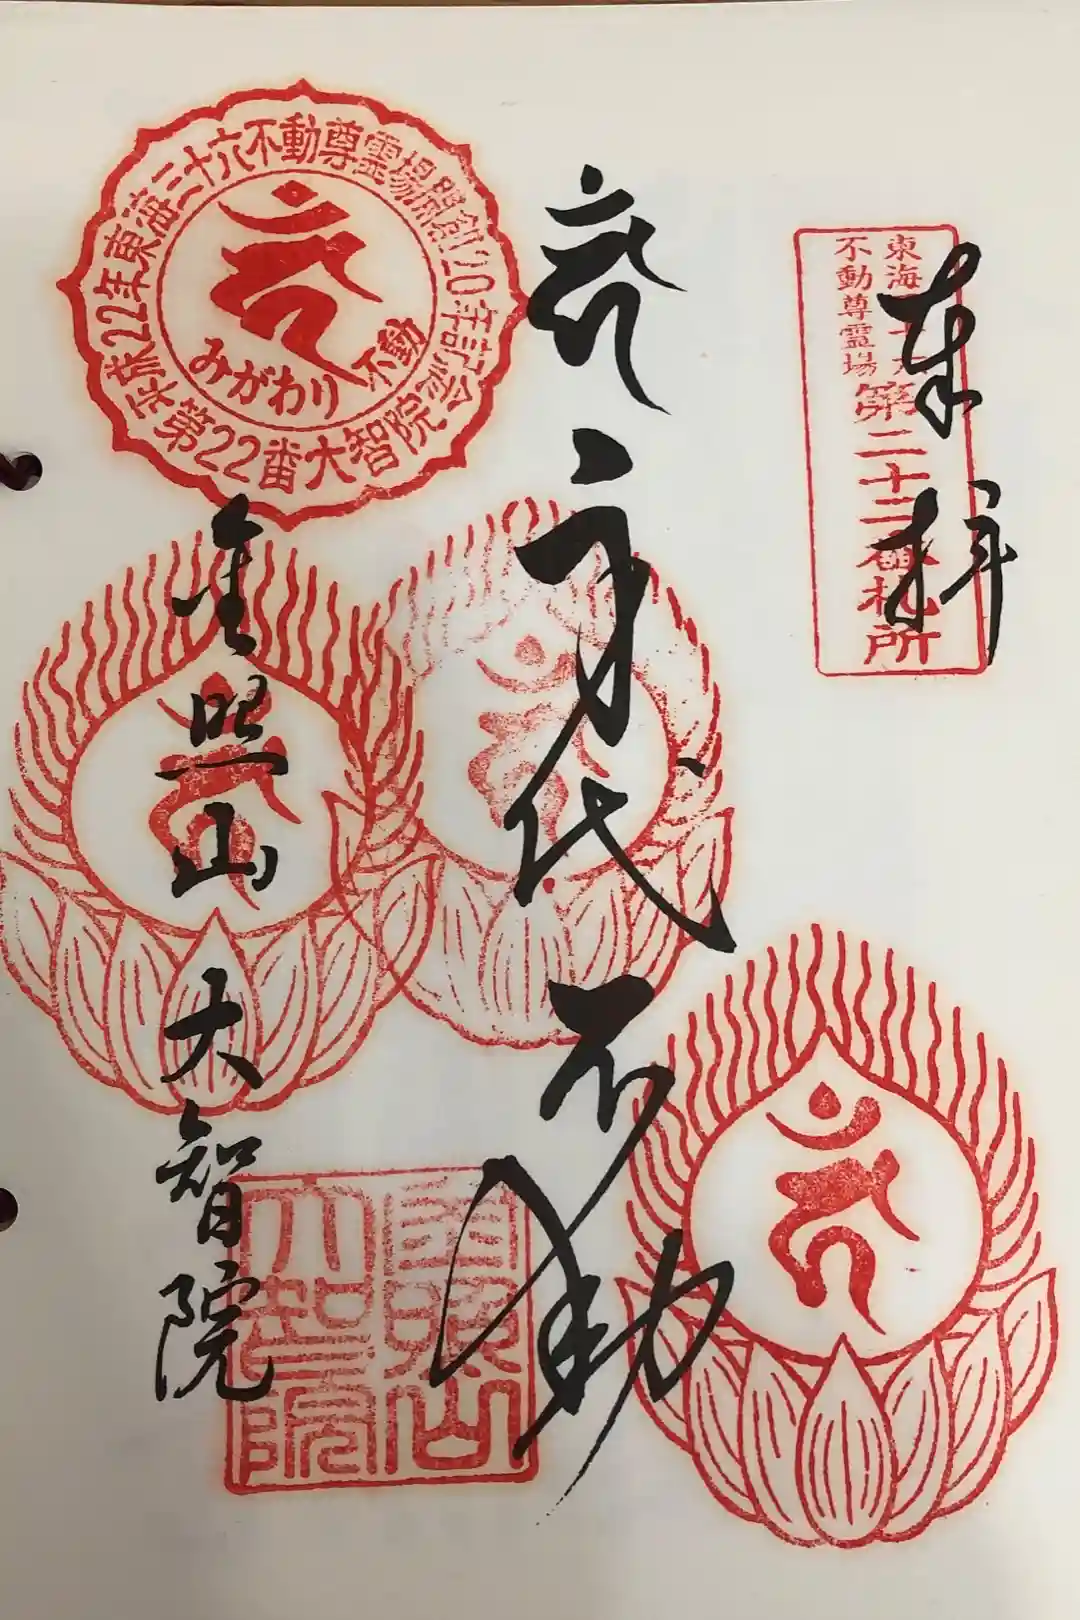 奉拝
東海三十六
不動尊霊場
第二十二番札所
身代不動
金照山 大智院
平成22年東海三十六不動尊霊場開創20年記念
第22番大智院
みがわり不動
金照山
大智院